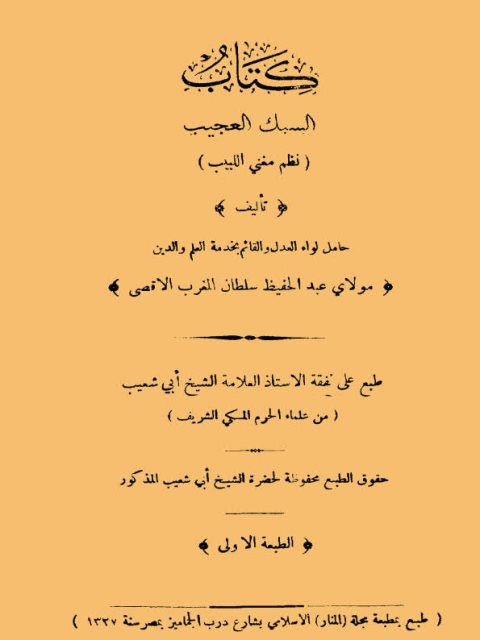 كِتَابُ
السبك العجيب
( نظم مغني اللبيب )
﴿ تأليف ﴾
حامل لواء العدل والقائم بخدمة العلم والدين
﴿ مولاي عبد الحفيظ سلطان المغرب الاقصى ﴾
طبع على نفقة الاستاذ العلامة الشيخ أبي شعيب
( من علماء الحرم المكي الشريف )
حقوق الطبع محفوظة لحضرة الشيخ أبي شعيب المذكور
﴿ الطبعة الاولى ﴾
( طبع بمطبعة مجلة (المنار) الاسلامي بشارع درب الجماميز بمصر سنة ١٣٢٧ )